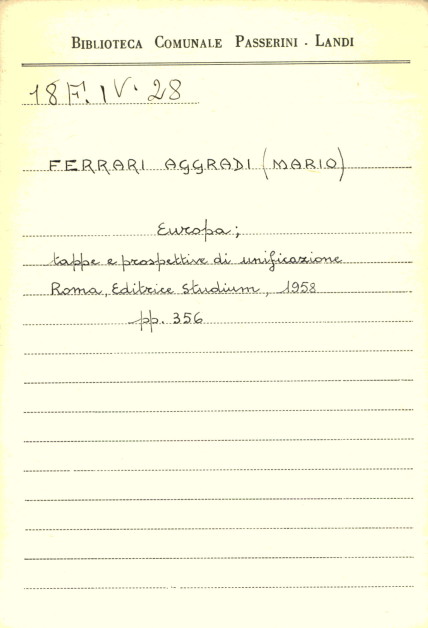 BIBLIOTECA COMUNALE PASSERINI - LANDI
18 F. IV. 28
FERRARI AGGRADI (MARIO)
Europa;
tappe e prospettive di unificazione
Roma, Editrice Studium, 1958
pp. 356